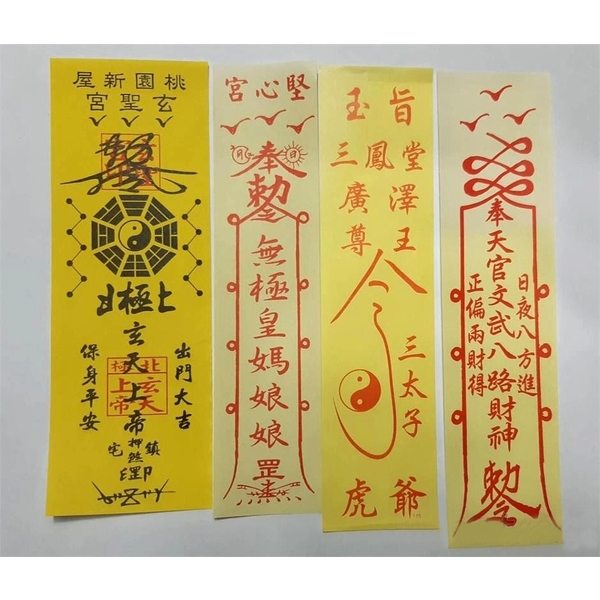 桃園新屋
玄聖宮
北極
玄天上帝
出門大吉
保身平安
鎮宅
押煞
堅心宮
日月
奉
勅令
無極皇媽娘娘
罡
玉旨
三鳳堂
廣澤尊王
令
三太子
虎爺
奉天官文武八路財神
日夜八方進
正偏兩財得
勅令